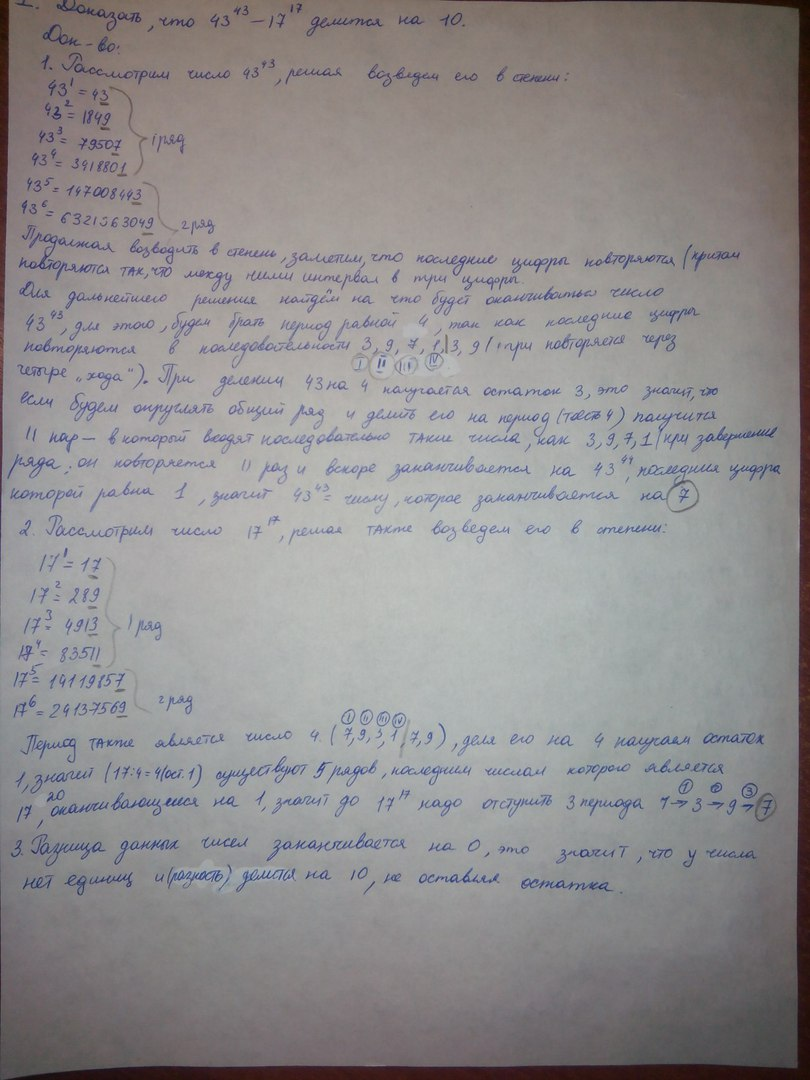 1. Доказать, что 43^43 – 17^17 делится на 10.
Док-во:
1. Рассмотрим число 43^43, решая возведем его в степени:
43^1 = 43
43^2 = 1849
43^3 = 79507
43^4 = 3418801
1 ряд
43^5 = 147008443
43^6 = 6321363049
2 ряд
Продолжая возводить в степень, заметим, что последние цифры повторяются (притом
повторяются так, что между ними интервал в три цифры.
Для дальнейшего решения найдём на что будет оканчиваться число
43^43, для этого, будем брать период равной 4, так как последние цифры
повторяются в последовательности 3, 9, 7, 1,|3, 9 (при повторяется через
I II III IV
четыре „хода"). При делении 43 на 4 получается остаток 3, это значит, что
если будем округлять общий ряд и делить его на период (тоесть 4) получится
11 пар – в который входят последовательно такие числа, как 3, 9, 7, 1 (при завершение
ряда, он повторяется 11 раз и вскоре заканчивается на 43^44, последняя цифра
которой равна 1, значит 43^43 = числу, которое заканчивается на 7
2. Рассмотрим число 17^17, решая также возведем его в степени:
17^1 = 17
17^2 = 289
17^3 = 4913
17^4 = 83511
1 ряд
17^5 = 14119857
17^6 = 24137569
2 ряд
I II III IV
Период также является число 4. (7, 9, 3, 1,|7, 9), деля его на 4 получаем остаток
1, значит (17:4=4(ост.1) существуют 5 рядов, последним числом которого является
17^20, оканчивающееся на 1, значит до 17^17 надо отступить 3 периода 1 →① 3 →② 9 →③ 7
3. Разница данных чисел заканчивается на 0, это значит, что у числа
нет единиц и (разность) делится на 10, не оставляя остатка.